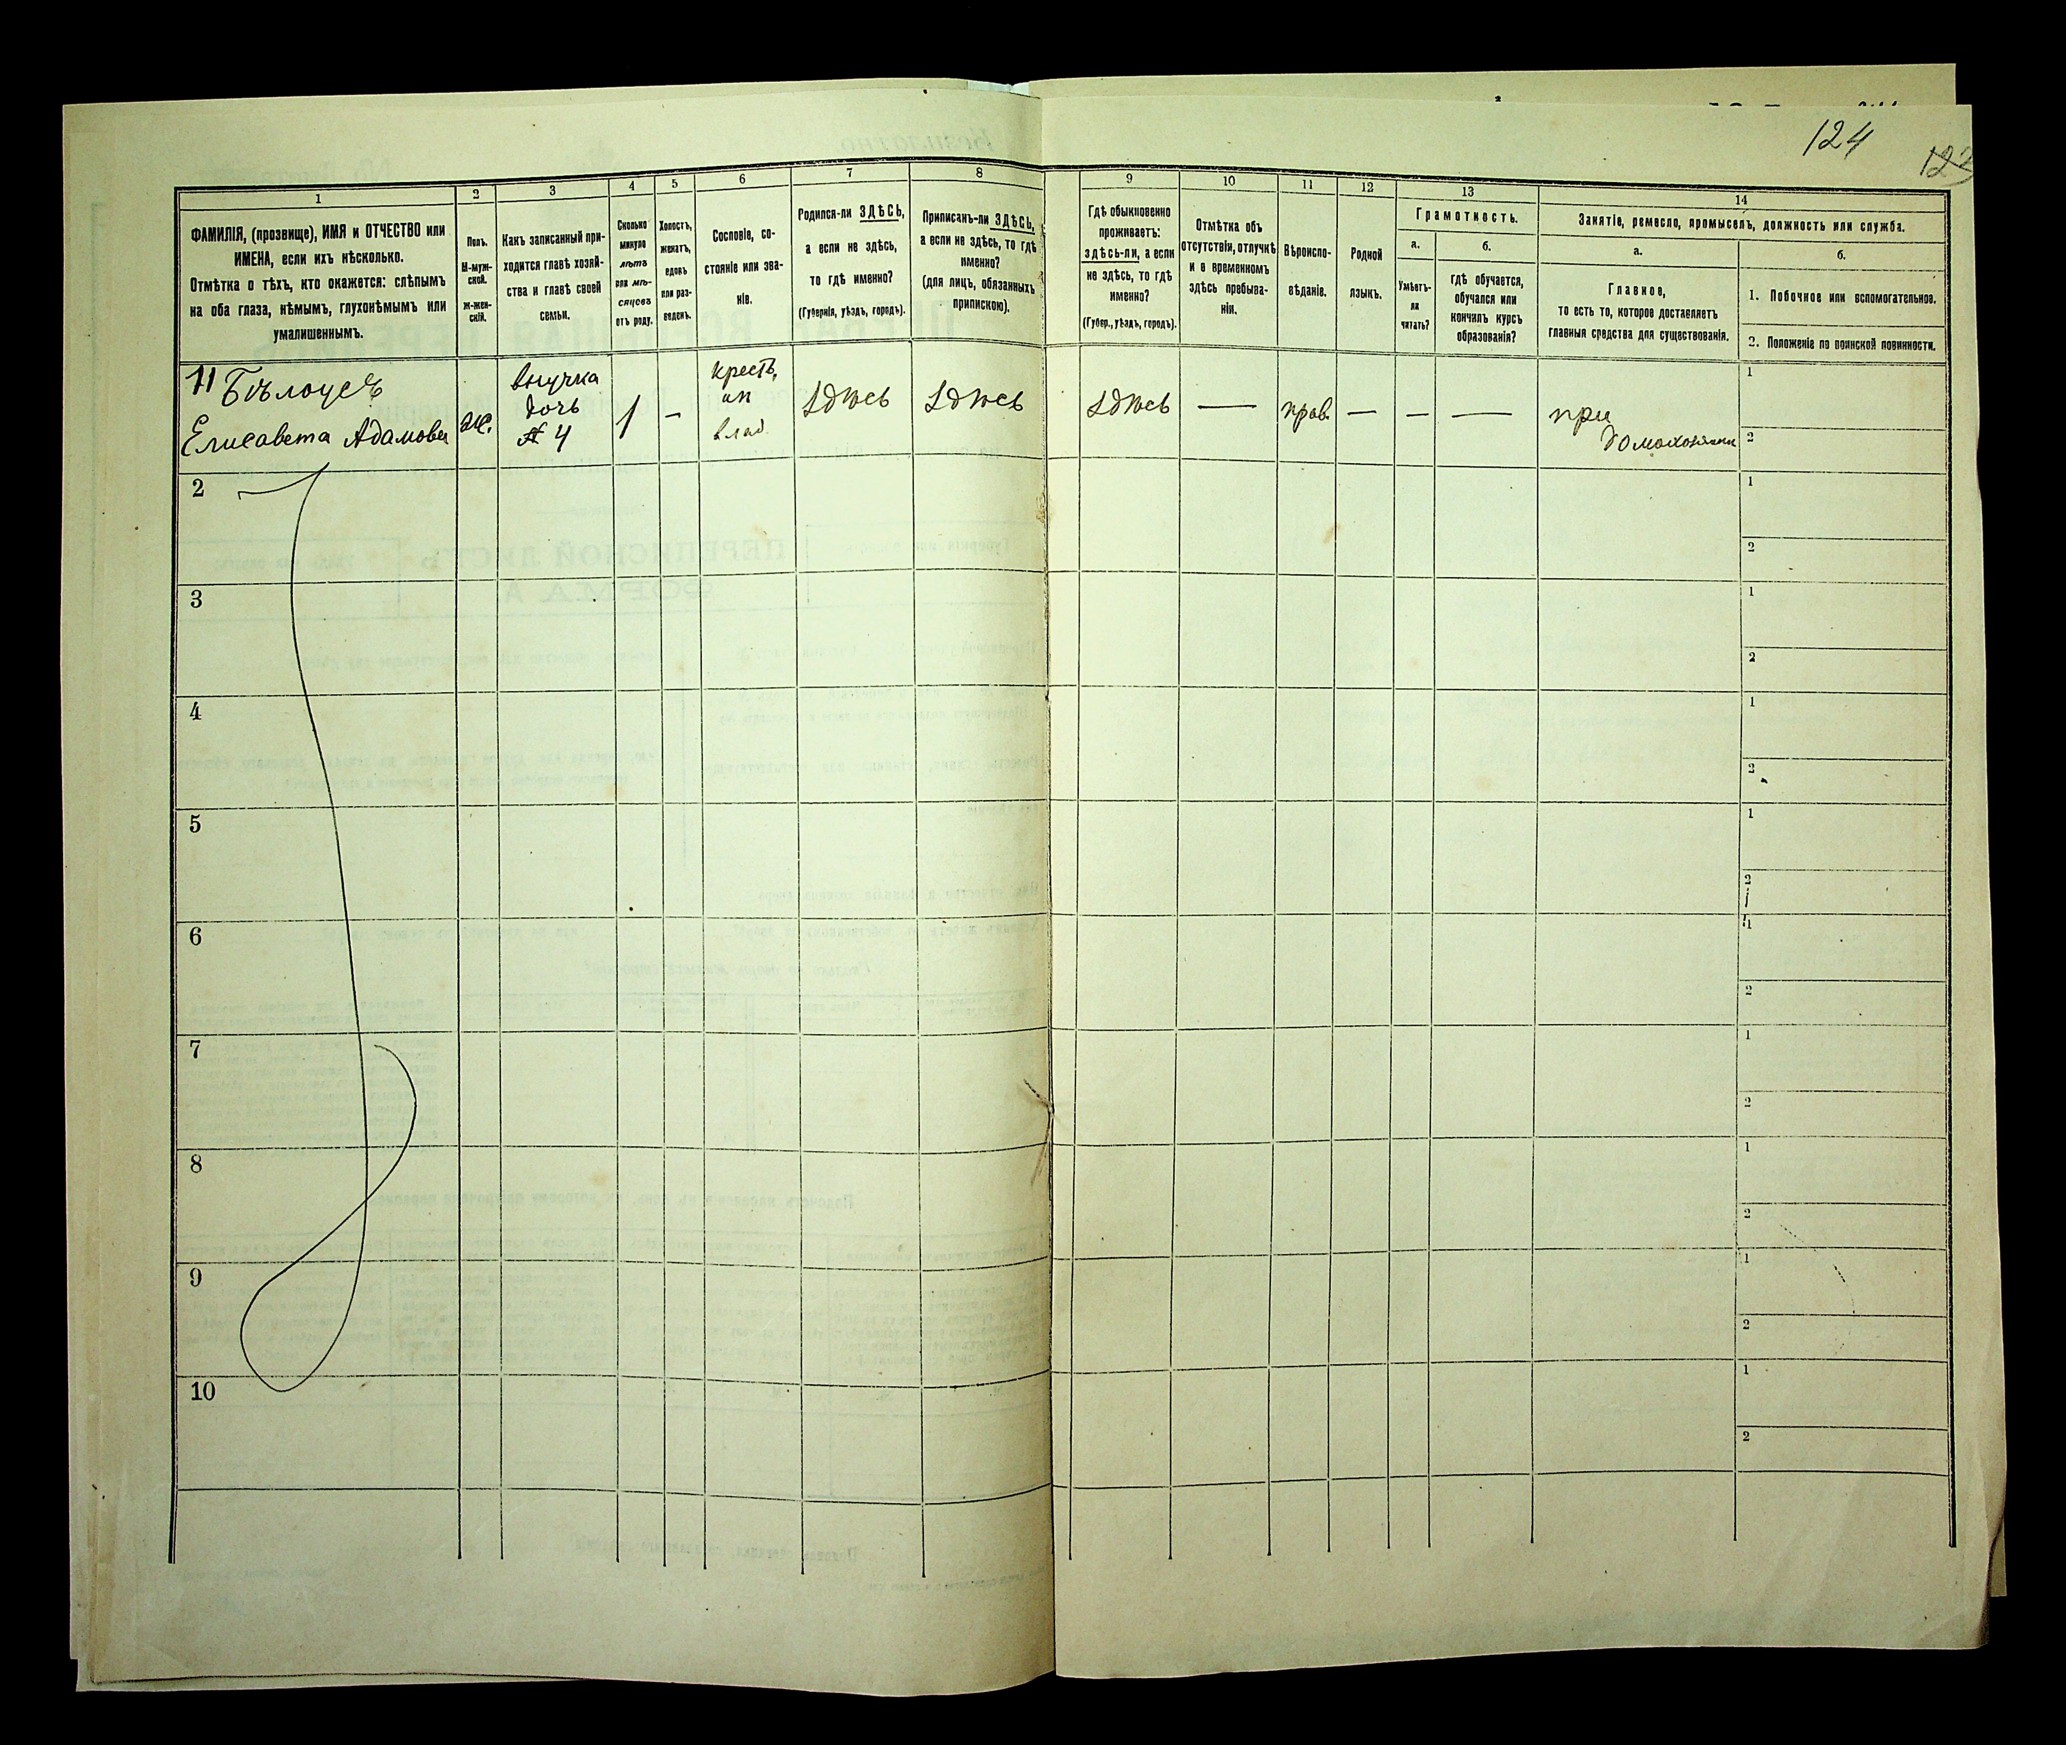 124
123
1
ФАМИЛІЯ, (прозвище), ИМЯ и ОТЧЕСТВО или
ИМЕНА, если ихъ нѣсколько.
Отмѣтка о тѣхъ, кто окажется: слѣпымъ
на оба глаза, нѣмымъ, глухонѣмымъ или
умалишеннымъ.
2
Полъ.
М-муж-
ской.
Ж-жен-
скій.
3
Какъ записанный при-
ходится главѣ хозяй-
ства и главѣ своей
семьи.
4
Сколько
минуло
лѣтъ
или мѣ-
сяцевъ
отъ роду.
5
Холостъ,
женатъ,
вдовъ
или раз-
веденъ.
6
Сословіе, со-
стояніе или зва-
ніе.
7
Родился-ли ЗДѢСЬ,
а если не здѣсь,
то гдѣ именно?
(Губернія, уѣздъ, городъ).
8
Приписанъ-ли ЗДѢСЬ,
а если не здѣсь, то гдѣ
именно?
(для лицъ, обязанныхъ
припискою).
9
Гдѣ обыкновенно
проживаетъ:
здѣсь-ли, а если
не здѣсь, то гдѣ
именно?
(Губер., уѣздъ, городъ).
10
Отмѣтка объ
отсутствіи, отлучкѣ
и о временномъ
здѣсь пребыва-
ніи.
11
Вѣроиспо-
вѣданіе.
12
Родной
языкъ.
13
Грамотность.
а.
Умѣетъ-
ли
читать?
б.
гдѣ обучается,
обучался или
кончилъ курсъ
образованія?
14
Занятіе, ремесло, промыселъ, должность или служба.
а.
Главное,
то есть то, которое доставляетъ
главныя средства для существованія.
б.
1. Побочное или вспомогательное.
2. Положеніе по воинской повинности.
11 Бѣлоусъ
Елисавета Адамовна
Ж.
внучка
дочь
№ 4
1
—
крест.
из
влад.
Здѣсь
Здѣсь
Здѣсь
—
прав.
—
—
—
при
домохозяине
1
2
2
1
2
3
1
2
4
1
2
5
1
2
6
1
2
7
1
2
8
1
2
9
1
2
10
1
2